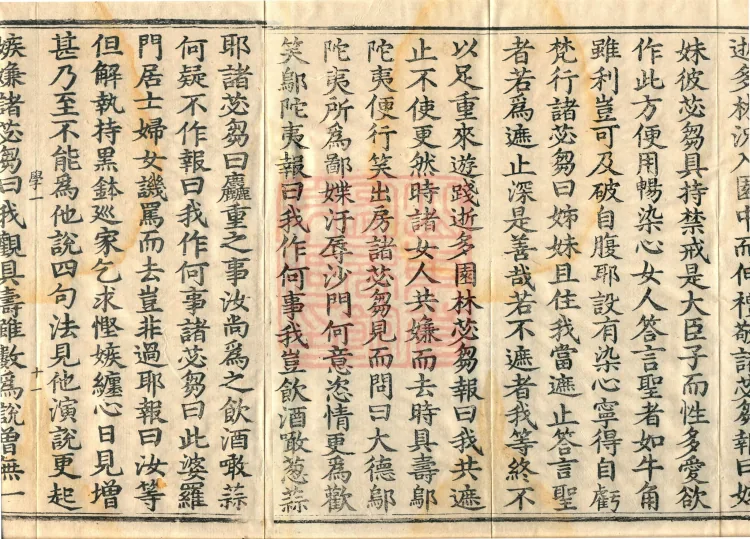 逝多林汝入園中而伸礼敬諸苾芻報曰姉
妹彼苾芻具持禁戒是大臣子而性多愛欲
作此方便用暢染心女人荅言聖者如牛角
雖利豈可及破自腹耶設有染心寧得自虧
梵行諸苾芻曰姊妹且住我當遮止荅言聖
者若爲遮止深是善哉若不遮者我等終不
以足重來遊踐逝多園林苾芻報曰我共遮
止不使更然時諸女人共嫌而去時具壽鄔
陀夷便行笑出房諸苾芻見而問曰大德鄔
陀夷所爲鄙媟汙辱沙門何意恣情更爲歡
笑鄔陀夷報曰我作何事我豈飲酒噉葱蒜
耶諸苾芻曰麤重之事汝尚爲之飲酒噉蒜
何疑不作報曰我作何事諸苾芻曰此婆羅
門居士婦女譏罵而去豈非過耶報曰汝等
但解執持黑鉢巡家乞求慳嫉纏心日見增
甚乃至不能爲他說四句法見他演說更起
學一 十一
嫉嫌諸苾芻曰我觀具壽雖數爲說曾無一